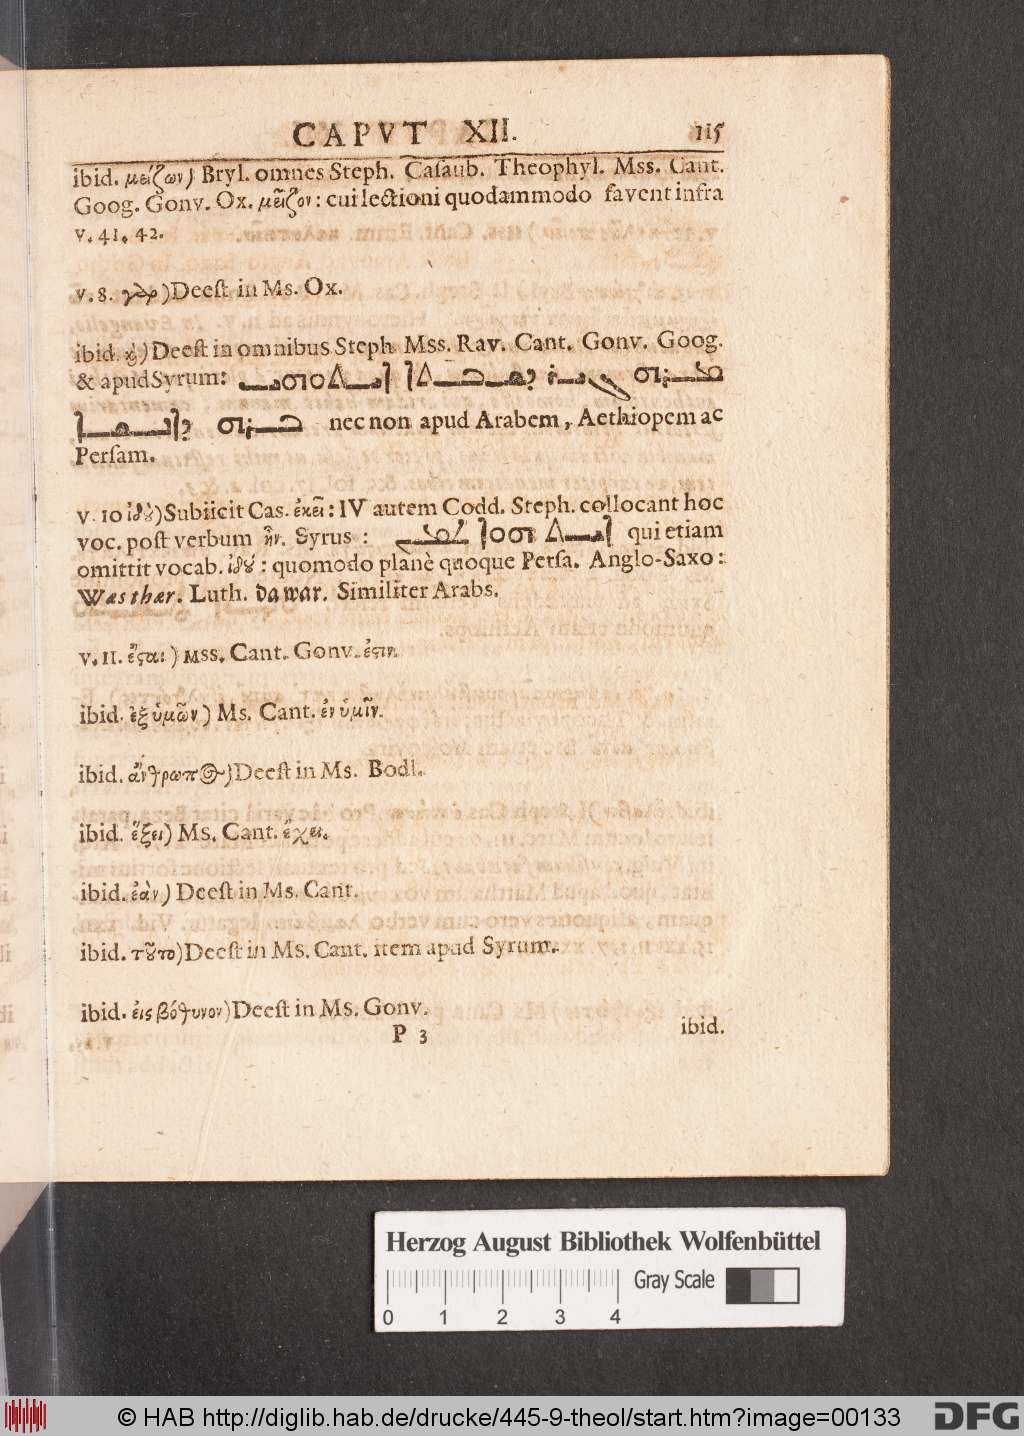 CAPVT XII. 115
ibid. μείζων) Bryl. omnes Steph. Caſaub. Theophyl. Mss. Cant.
Goog. Gonv. Ox. μεῖζον: cui lectioni quodammodo favent infra
v. 41. 42.
v. 8. γὰρ) Deeſt in Ms. Ox.
ibid. ϗ̀) Deeſt in omnibus Steph Mss. Rav. Cant. Gonv. Goog.
& apud Syrum: ܡܪܗ ܓܝܪ ܕܫܒܬܐ ܐܝܬܘܗܝ
ܒܪܗ ܕܐܢܫܐ nec non apud Arabem, Aethiopem ac
Perſam.
v. 10 ἰδȣ̀) Subiicit Caſ. ἐκεῖ: IV autem Codd. Steph. collocant hoc
voc. poſt verbum ἦν. Syrus: ܐܝܬ ܗܘܐ ܬܡܢ qui etiam
omittit vocab. ἰδȣ́: quomodo planè quoque Perſa. Anglo-Saxo:
Wæs thær. Luth. da war. Similiter Arabs.
v. 11. ἔςαι) Mss. Cant. Gonv. ἐςιν.
ibid. ἐξ ὑμῶν) Ms. Cant. ἐν ὑμῖν.
ibid. ἄνθρωπος) Deeſt in Ms. Bodl.
ibid. ἕξει) Ms. Cant. ἔχει.
ibid. ἐὰν) Deeſt in Ms. Cant.
ibid. τȣ͂το) Deeſt in Ms. Cant. item apud Syrum.
ibid. εἰς βόθυνον) Deeſt in Ms. Gonv.
P 3 ibid.
Herzog August Bibliothek Wolfenbüttel
Gray Scale
0 1 2 3 4
© HAB http://diglib.hab.de/drucke/445-9-theol/start.htm?image=00133 DFG